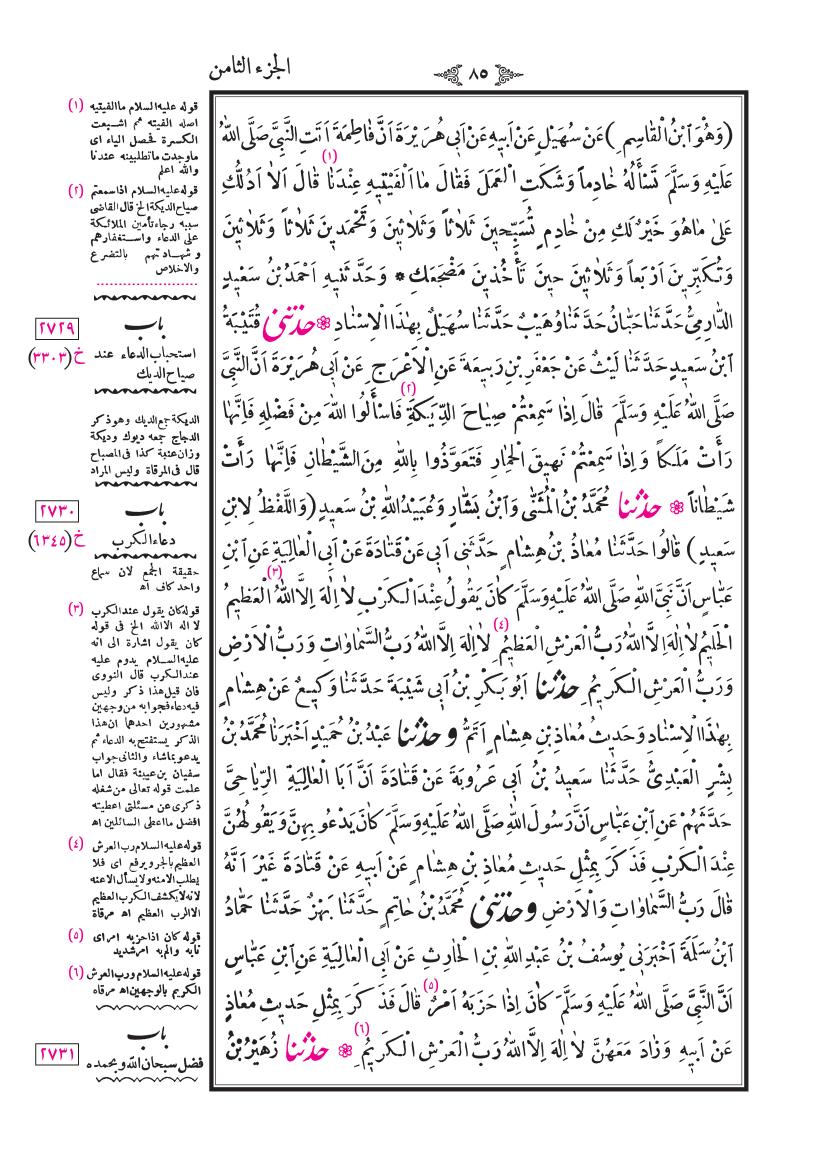 الجزء الثامن
٨٥
(وَهُوَ ابْنُ الْقَاسِمِ) عَنْ سُهَيْلٍ عَنْ اَبِيهِ عَنْ اَبِى هُرَيْرَةَ اَنَّ فَاطِمَةَ اَتَتِ النَّبِىَّ صَلَّى اللهُ
عَلَيْهِ وَسَلَّمَ تَسْأَلُهُ خَادِماً وَشَكَتِ الْعَمَلَ فَقَالَ مَا اَلْفَيْتِيهِ عِنْدَنَا (١) قَالَ اَلاَ اَدُلُّكِ
عَلىٰ مَا هُوَ خَيْرٌ لَكِ مِنْ خَادِمٍ تُسَبِّحِينَ ثَلاَثاً وَثَلاَثِينَ وَتَحْمَدِينَ ثَلاَثاً وَثَلاَثِينَ
وَتُكَبِّرِينَ اَرْبَعاً وَثَلاَثِينَ حِينَ تَأْخُذِينَ مَضْجَعَكِ * وَحَدَّثَنِيهِ اَحْمَدُ بْنُ سَعِيدٍ
الدَّارِمِىُّ حَدَّثَنَا حَبَّانُ حَدَّثَنَا وُهَيْبٌ حَدَّثَنَا سُهَيْلٌ بِهٰذَا الْاِسْنَادِ ❁ حَدَّثَنِى قُتَيْبَةُ
ابْنُ سَعِيدٍ حَدَّثَنَا لَيْثٌ عَنْ جَعْفَرِ بْنِ رَبِيعَةَ عَنِ الْاَعْرَجِ عَنْ اَبِى هُرَيْرَةَ اَنَّ النَّبِىَّ
صَلَّى اللهُ عَلَيْهِ وَسَلَّمَ قَالَ اِذَا سَمِعْتُمْ صِيَاحَ الدِّيَكَةِ (٢) فَاسْأَلُوا اللهَ مِنْ فَضْلِهِ فَاِنَّهَا
رَأَتْ مَلَكاً وَاِذَا سَمِعْتُمْ نَهِيقَ الْحِمَارِ فَتَعَوَّذُوا بِاللهِ مِنَ الشَّيْطَانِ فَاِنَّهَا رَأَتْ
شَيْطَاناً ❁ حَدَّثَنَا مُحَمَّدُ بْنُ الْمُثَنّٰى وَابْنُ بَشَّارٍ وَعُبَيْدُ اللهِ بْنُ سَعِيدٍ (وَاللَّفْظُ لِابْنِ
سَعِيدٍ) قَالُوا حَدَّثَنَا مُعَاذُ بْنُ هِشَامٍ حَدَّثَنِى اَبِى عَنْ قَتَادَةَ عَنْ اَبِى الْعَالِيَةِ عَنِ ابْنِ
عَبَّاسٍ اَنَّ نَبِىَّ اللهِ صَلَّى اللهُ عَلَيْهِ وَسَلَّمَ كَانَ يَقُولُ عِنْدَ الْكَرْبِ (٣) لاَ اِلٰهَ اِلاَّ اللهُ الْعَظِيمُ
الْحَلِيمُ لاَ اِلٰهَ اِلاَّ اللهُ رَبُّ الْعَرْشِ الْعَظِيمِ (٤) لاَ اِلٰهَ اِلاَّ اللهُ رَبُّ السَّمَاوَاتِ وَرَبُّ الْاَرْضِ
وَرَبُّ الْعَرْشِ الْكَرِيمِ حَدَّثَنَا اَبُو بَكْرِ بْنُ اَبِى شَيْبَةَ حَدَّثَنَا وَكِيعٌ عَنْ هِشَامٍ
بِهٰذَا الْاِسْنَادِ وَحَدِيثُ مُعَاذِ بْنِ هِشَامٍ اَتَمُّ وَحَدَّثَنَا عَبْدُ بْنُ حُمَيْدٍ اَخْبَرَنَا مُحَمَّدُ بْنُ
بِشْرٍ الْعَبْدِىُّ حَدَّثَنَا سَعِيدُ بْنُ اَبِى عَرُوبَةَ عَنْ قَتَادَةَ اَنَّ اَبَا الْعَالِيَةِ الرِّيَاحِىَّ
حَدَّثَهُمْ عَنِ ابْنِ عَبَّاسٍ اَنَّ رَسُولَ اللهِ صَلَّى اللهُ عَلَيْهِ وَسَلَّمَ كَانَ يَدْعُو بِهِنَّ وَيَقُولُهُنَّ
عِنْدَ الْكَرْبِ فَذَكَرَ بِمِثْلِ حَدِيثِ مُعَاذِ بْنِ هِشَامٍ عَنْ اَبِيهِ عَنْ قَتَادَةَ غَيْرَ اَنَّهُ
قَالَ رَبُّ السَّمَاوَاتِ وَالْاَرْضِ وَحَدَّثَنِى مُحَمَّدُ بْنُ حَاتِمٍ حَدَّثَنَا بَهْزٌ حَدَّثَنَا حَمَّادُ
ابْنُ سَلَمَةَ اَخْبَرَنِى يُوسُفُ بْنُ عَبْدِ اللهِ بْنِ الْحَارِثِ عَنْ اَبِى الْعَالِيَةِ عَنِ ابْنِ عَبَّاسٍ
اَنَّ النَّبِىَّ صَلَّى اللهُ عَلَيْهِ وَسَلَّمَ كَانَ اِذَا حَزَبَهُ اَمْرٌ (٥) قَالَ فَذَكَرَ بِمِثْلِ حَدِيثِ مُعَاذٍ
عَنْ اَبِيهِ وَزَادَ مَعَهُنَّ لاَ اِلٰهَ اِلاَّ اللهُ رَبُّ الْعَرْشِ الْكَرِيمِ (٦) ❁ حَدَّثَنَا زُهَيْرُ بْنُ
(١) قوله عليه السلام ما الفيتيه
اصله الفيته ثم اشبعت
الكسرة فحصل الياء اى
ما وجدت ما تطلبينه عندنا
والله اعلم
(٢) قوله عليه السلام اذا سمعتم
صياح الديكة الخ قال القاضى
سببه رجاء تأمين الملائكة
على الدعاء واستغفارهم
وشهادتهم بالتضرع
والاخلاص
باب
٢٧٢٩
استحباب الدعاء عند
خ (٣٣٠٣)
صياح الديك
الديكة جمع الديك وهو ذكر
الدجاج جمعه ديوك وديكة
وزان عنبة كذا فى المصباح
قال فى المرقاة وليس المراد
باب
٢٧٣٠
دعاء الكرب
خ (٦٣٤٥)
حقيقة الجمع لان سماع
واحد كاف اه
(٣) قوله كان يقول عند الكرب
لا اله الا الله الخ فى قوله
كان يقول اشارة الى انه
عليه السلام يدوم عليه
عند الكرب قال النووى
فان قيل هذا ذكر وليس
فيه دعاء فجوابه من وجهين
مشهورين احدهما ان هذا
الذكر يستفتح به الدعاء ثم
يدعو بما شاء والثانى جواب
سفيان بن عيينة فقال اما
علمت قوله تعالى من شغله
ذكرى عن مسئلتى اعطيته
افضل ما اعطى السائلين اه
(٤) قوله عليه السلام رب العرش
العظيم بالجر ويرفع اى فلا
يطلب الا منه ولا يسأل الا عنه
لانه لا يكشف الكرب العظيم
الا الرب العظيم اه مرقاة
(٥) قوله كان اذا حزبه امر اى
نابه والم به امر شديد
(٦) قوله عليه السلام ورب العرش
الكريم بالوجهين اه مرقاه
باب
٢٧٣١
فضل سبحان الله وبحمده